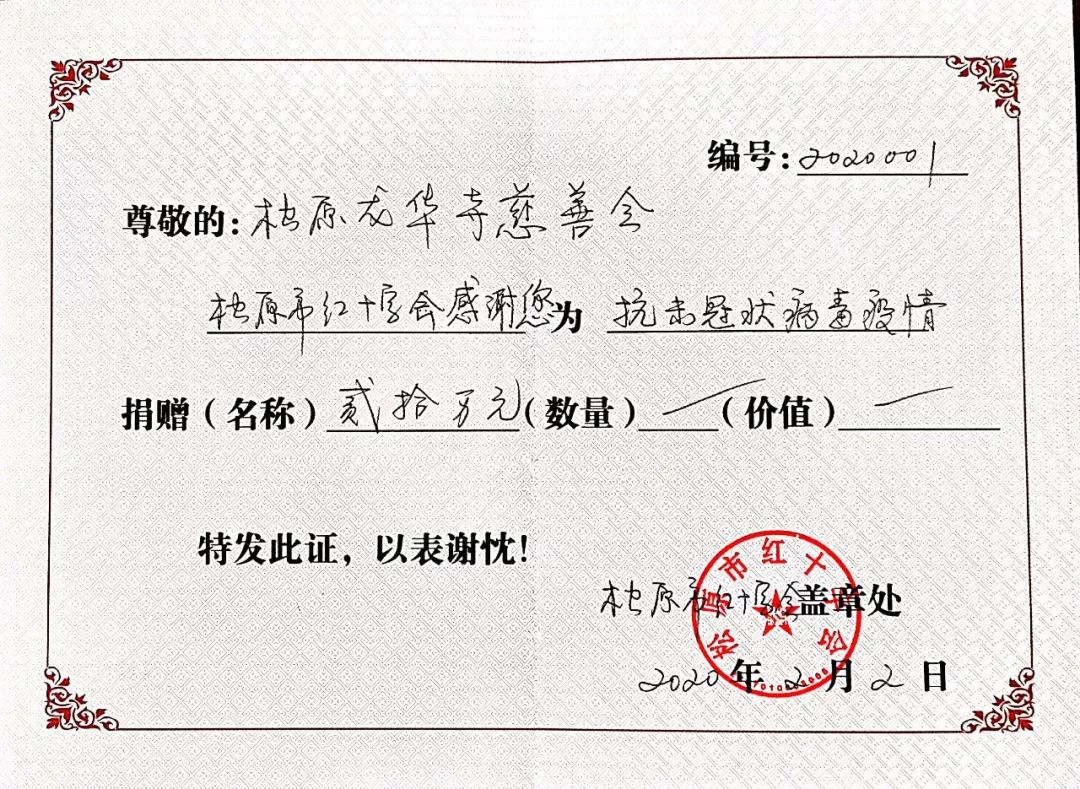 编号:2020001
尊敬的:松原龙华寺慈善会
松原市红十字会感谢您为 抗击冠状病毒疫情
捐赠(名称)贰拾万元(数量)(价值)
特发此证,以表谢忱!
松原市红十字会
松原市红十字会盖章处
2020年2月2日